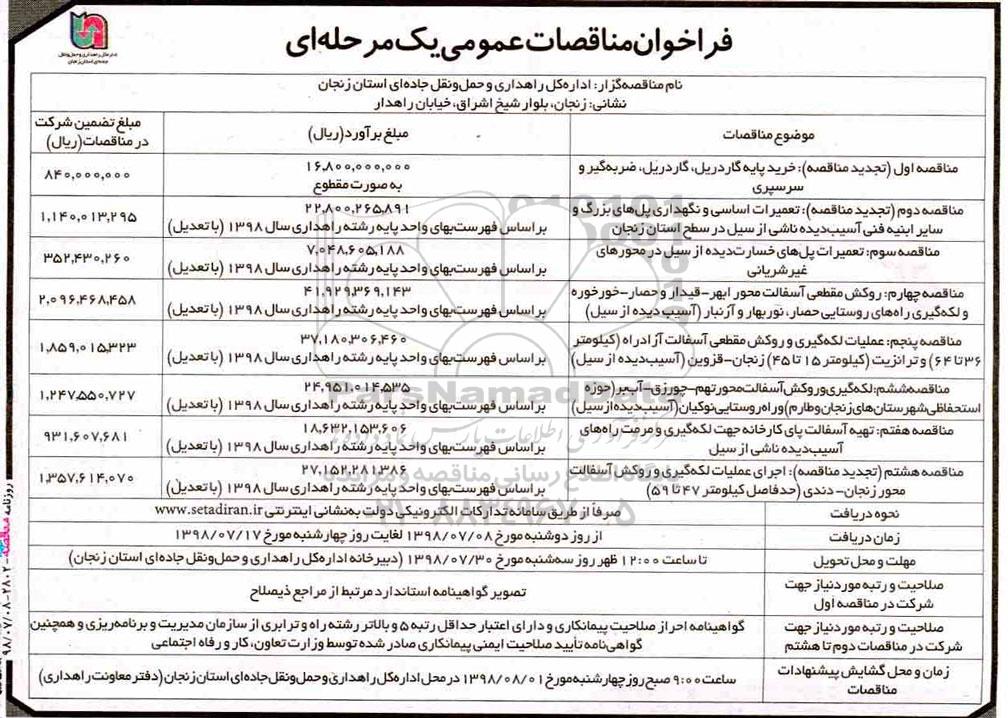 فراخوان مناقصات عمومی یک مرحله‌ای
اداره کل راهداری و حمل و نقل
جاده‌ای استان زنجان
نام مناقصه‌گزار: اداره‌کل راهداری و حمل‌ونقل جاده‌ای استان زنجان
نشانی: زنجان، بلوار شیخ اشراق، خیابان راهدار
موضوع مناقصات
مبلغ برآورد (ریال)
مبلغ تضمین شرکت
در مناقصات (ریال)
مناقصه اول (تجدید مناقصه): خرید پایه گاردریل، گاردریل، ضربه‌گیر و
سرسپری
۱۶,۸۰۰,۰۰۰,۰۰۰
به صورت مقطوع
۸۴۰,۰۰۰,۰۰۰
مناقصه دوم (تجدید مناقصه): تعمیرات اساسی و نگهداری پل‌های بزرگ و
سایر ابنیه فنی آسیب‌دیده ناشی از سیل در سطح استان زنجان
۲۲,۸۰۰,۲۶۵,۸۹۱
بر اساس فهرست‌بهای واحد پایه رشته راهداری سال ۱۳۹۸ (با تعدیل)
۱,۱۴۰,۰۱۳,۲۹۵
مناقصه سوم: تعمیرات پل‌های خسارت‌دیده از سیل در محورهای
غیرشریانی
۷,۰۴۸,۶۰۵,۱۸۸
بر اساس فهرست‌بهای واحد پایه رشته راهداری سال ۱۳۹۸ (با تعدیل)
۳۵۲,۴۳۰,۲۶۰
مناقصه چهارم: روکش مقطعی آسفالت محور ابهر-قیدار و حصار-خورخوره
و لکه‌گیری راه‌های روستایی حصار، نوربهار و آزنبار (آسیب‌دیده از سیل)
۴۱,۹۲۹,۳۶۹,۱۴۳
بر اساس فهرست‌بهای واحد پایه رشته راهداری سال ۱۳۹۸ (با تعدیل)
۲,۰۹۶,۴۶۸,۴۵۸
مناقصه پنجم: عملیات لکه‌گیری و روکش مقطعی آسفالت آزادراه (کیلومتر
۳۶ تا ۶۴) و ترانزیت (کیلومتر ۱۵ تا ۴۵) زنجان-قزوین (آسیب‌دیده از سیل)
۳۷,۱۸۰,۳۰۶,۴۶۰
بر اساس فهرست‌بهای واحد پایه رشته راهداری سال ۱۳۹۸ (با تعدیل)
۱,۸۵۹,۰۱۵,۳۲۳
مناقصه ششم: لکه‌گیری و روکش آسفالت محور تهم-چورزق-آب‌بر (حوزه
استحفاظی شهرستان‌های زنجان و طارم) و راه روستایی نوکیان (آسیب‌دیده از سیل)
۲۴,۹۵۱,۰۱۴,۵۳۵
بر اساس فهرست‌بهای واحد پایه رشته راهداری سال ۱۳۹۸ (با تعدیل)
۱,۲۴۷,۵۵۰,۷۲۷
مناقصه هفتم: تهیه آسفالت پای کارخانه جهت لکه‌گیری و مرمت راه‌های
آسیب‌دیده ناشی از سیل
۱۸,۶۳۲,۱۵۳,۶۰۶
بر اساس فهرست‌بهای واحد پایه رشته راهداری سال ۱۳۹۸ (با تعدیل)
۹۳۱,۶۰۷,۶۸۱
مناقصه هشتم (تجدید مناقصه): اجرای عملیات لکه‌گیری و روکش آسفالت
محور زنجان-دندی (حدفاصل کیلومتر ۴۷ تا ۵۹)
۲۷,۱۵۲,۲۸۱,۳۸۶
بر اساس فهرست‌بهای واحد پایه رشته راهداری سال ۱۳۹۸ (با تعدیل)
۱,۳۵۷,۶۱۴,۰۷۰
نحوه دریافت
صرفاً از طریق سامانه تدارکات الکترونیکی دولت به نشانی اینترنتی www.setadiran.ir
زمان دریافت
از روز دوشنبه مورخ ۱۳۹۸/۰۷/۰۸ لغایت روز چهارشنبه مورخ ۱۳۹۸/۰۷/۱۷
مهلت و محل تحویل
تا ساعت ۱۲:۰۰ ظهر روز سه‌شنبه مورخ ۱۳۹۸/۰۷/۳۰ (دبیرخانه اداره‌کل راهداری و حمل‌ونقل جاده‌ای استان زنجان)
صلاحیت و رتبه مورد نیاز جهت
شرکت در مناقصه اول
تصویر گواهینامه استاندارد مرتبط از مراجع ذیصلاح
صلاحیت و رتبه مورد نیاز جهت
شرکت در مناقصات دوم تا هشتم
گواهینامه احراز صلاحیت پیمانکاری و دارای اعتبار حداقل رتبه ۵ و بالاتر رشته راه و ترابری از سازمان مدیریت و برنامه‌ریزی و همچنین
گواهی‌نامه تأیید صلاحیت ایمنی پیمانکاری صادر شده توسط وزارت تعاون، کار و رفاه اجتماعی
زمان و محل گشایش پیشنهادات
مناقصات
ساعت ۹:۰۰ صبح روز چهارشنبه مورخ ۱۳۹۸/۰۸/۰۱ در محل اداره‌کل راهداری و حمل‌ونقل جاده‌ای استان زنجان (دفتر معاونت راهداری)
روزنامه مناقصه - ۲۸۰۲ - ۹۸/۰۷/۰۸
ParsNamadData
۰۲۱-۸۸۳۴۹۶۷۰-۵